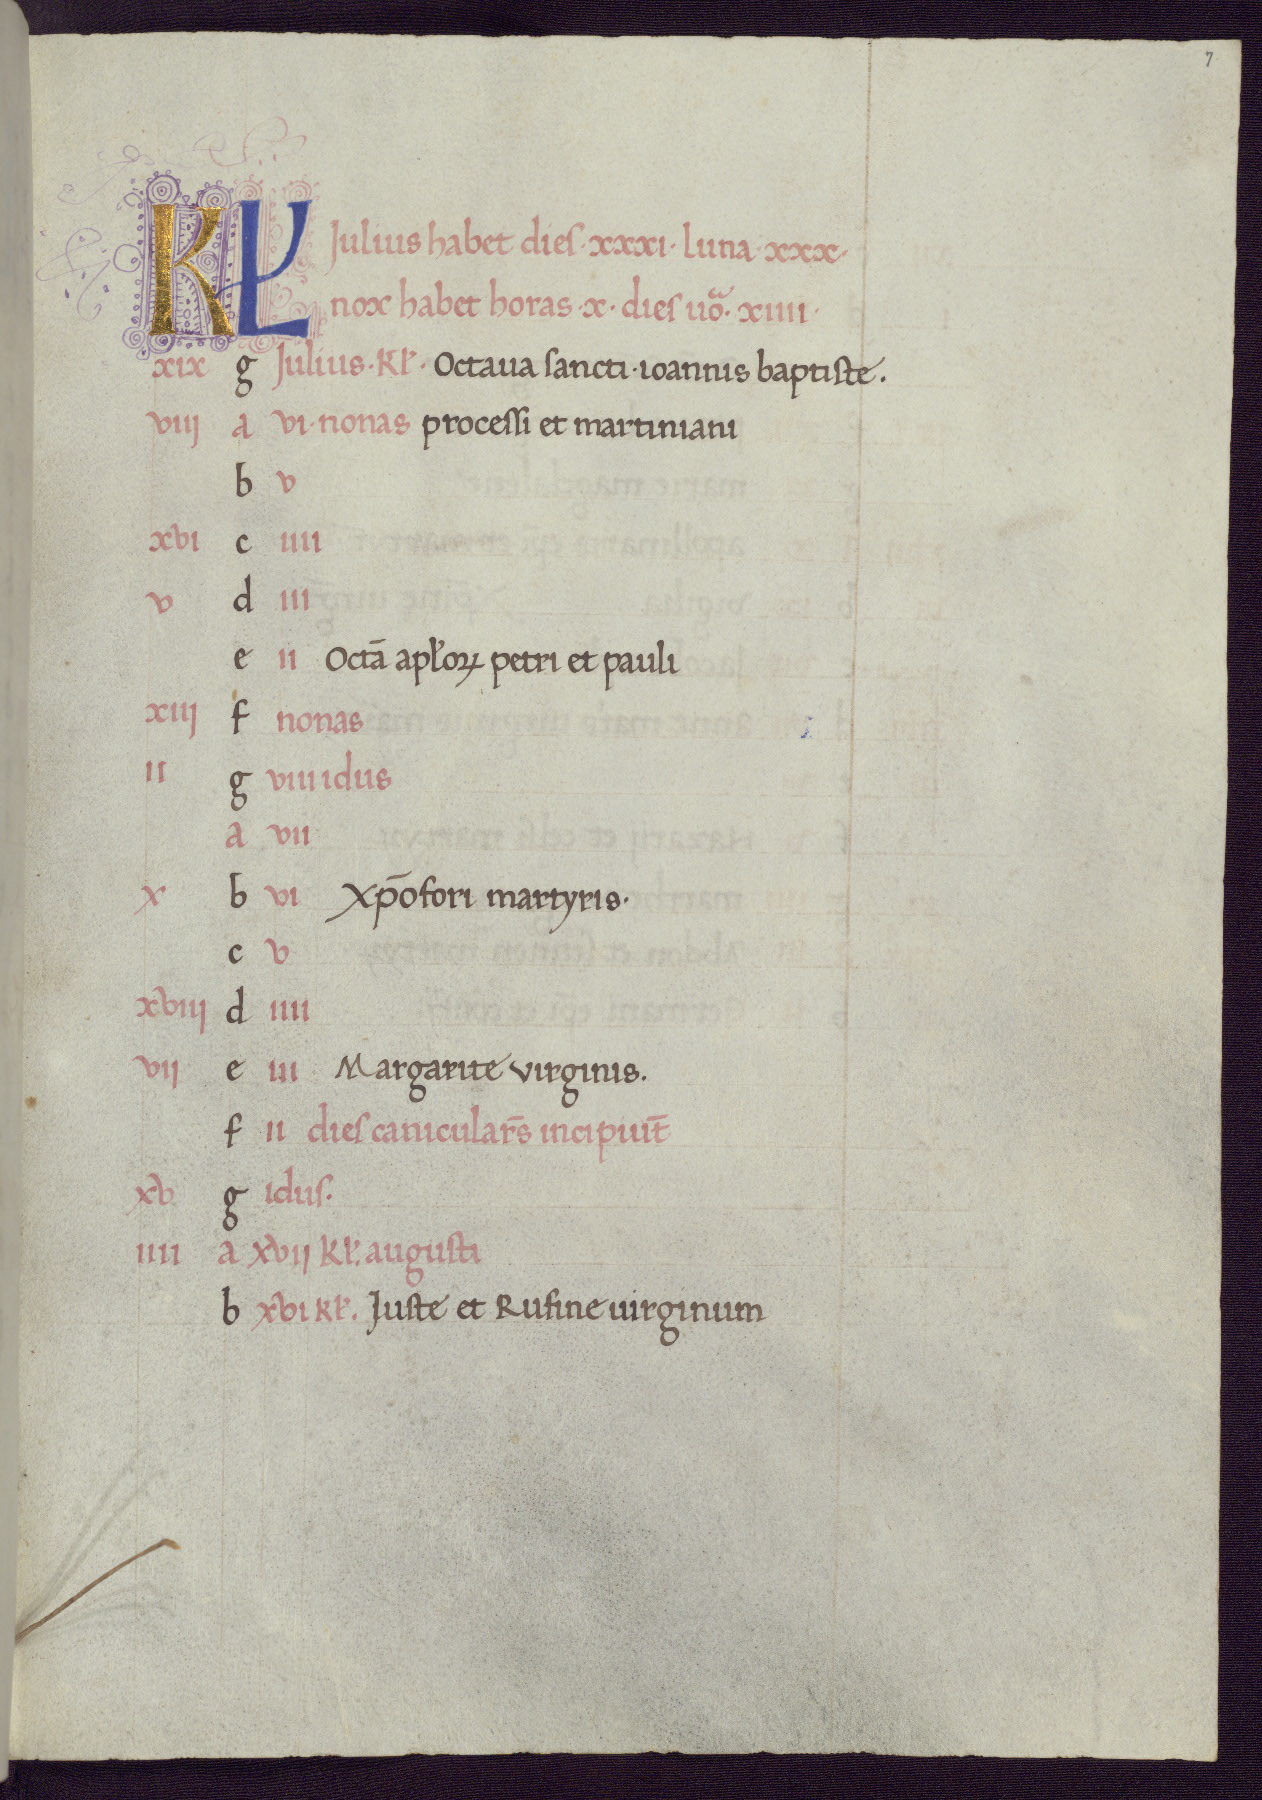 7
KL Julius habet dies · xxxi · luna · xxx ·
nox habet horas · x · dies uo͞ · xiiii ·
xix g Julius · kl̄ · Octaua sancti · ioannis baptiste .
viii a vi · nonas processi et martiniani
b v
xvi c iiii
v d iii
e ii Octā apl̄oꝝ petri et pauli
xiii f nonas
ii g viii idus
a vii
x b vi Xp̄ofori martyris ·
c v
xviii d iiii
vii e iii Margarite virginis .
f ii dies canicular̄s incipiūt
xv g idus .
iiii a xvii kl̄ . augusti
b xvi kl̄ . Juste et Rufine uirginum